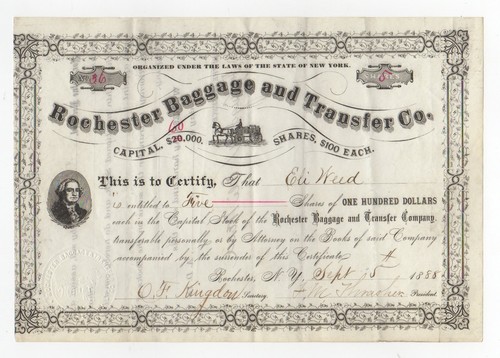 ORGANIZED UNDER THE LAWS OF THE STATE OF NEW YORK.
No 26 SHARES 5
Rochester Baggage and Transfer Co.
60
CAPITAL, $20,000. SHARES, $100 EACH.
This is to Certify, That Eli Weed
is entitled to Five Shares of ONE HUNDRED DOLLARS
each in the Capital Stock of the Rochester Baggage and Transfer Company,
transferable personally or by Attorney on the Books of said Company
accompanied by the surrender of this Certificate
Rochester, N.Y. Sept 15 1888
O. F. Kingdon Secretary President